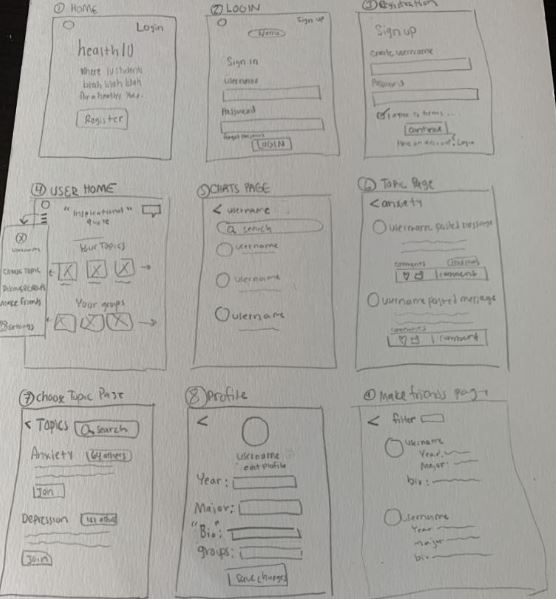 ① HOME
Login
healthIU
Where IU students
blah blah blah
for a healthy
Register
② LOGIN
Sign up
Home
Sign in
username
Password
Forgot password
LOGIN
③ Registration
Sign up
Create username
Password
I agree to terms...
Continue
Have an account? Login
④ USER HOME
"Inspirational"
quote
Your Topics
Your groups
username
Choose Topic
Make friends
settings
⑤ CHATS PAGE
< username
search
username
username
username
⑥ Topic Page
< anxiety
username posted message
comments
comment
username posted message
comments
comment
⑦ Choose Topic Page
< Topics
search
Anxiety
64 others
Join
Depression
Join
⑧ Profile
<
username
edit profile
Year:
Major:
"Bio":
groups:
Save changes
Make friends page
<
filter
username
Year
Major:
bio:
username
Year
major
bio